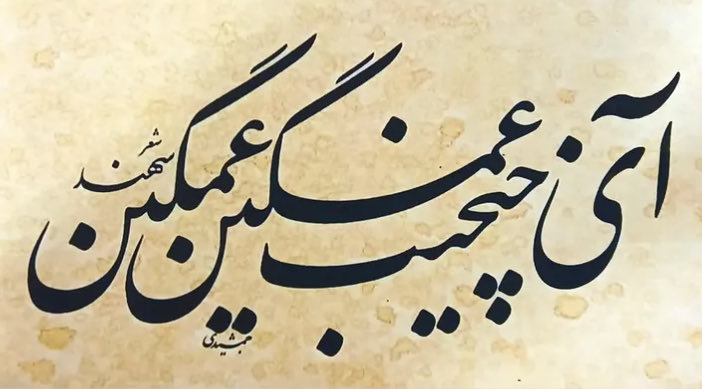 آی چیخیب غمگین غمگین
شعر سهند
جمشیدی